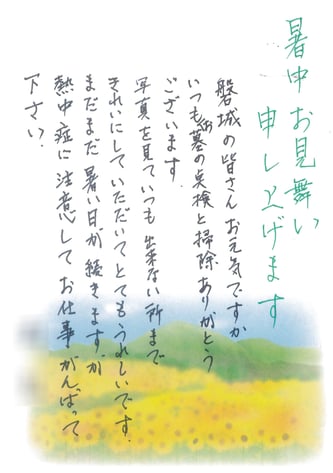 暑中お見舞い
申し上げます
磐城の皆さんお元気ですか
いつもお墓の点検と掃除ありがとう
ございます。
写真を見ていつも出来ない所まで
きれいにしていただいてとてもうれしいです。
まだまだ暑い日が続きますが
熱中症に注意してお仕事がんばって
下さい。